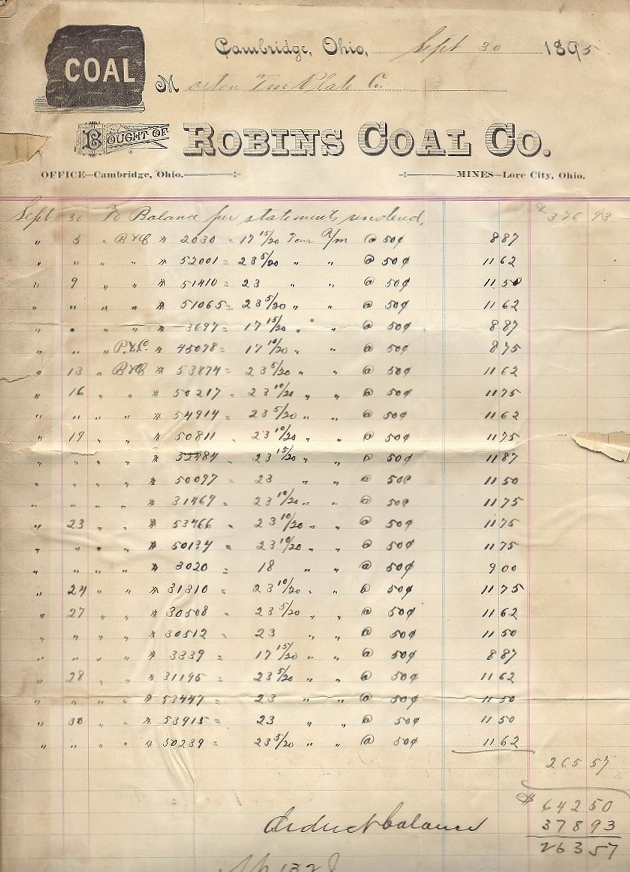 COAL
Cambridge, Ohio, Sept 30 1895
M orton Tin Plate Co.
BOUGHT OF ROBINS COAL CO.
OFFICE—Cambridge, Ohio. MINES—Lore City, Ohio.
Sept 30 To Balance per statement rendered, $ 376 93
" 5 " B&O # 2030 = 17 15/20 Tons P/m @ 50¢ 8 87
" " " # 52001 = 23 5/20 " " @ 50¢ 11 62
" 9 " " # 51410 = 23 " " @ 50¢ 11 50
" " " " # 51065 = 23 5/20 " " @ 50¢ 11 62
" " " " # 3697 = 17 15/20 " " @ 50¢ 8 87
" " " # 45078 = 17 10/20 " " @ 50¢ 8 75
" 13 " B&O # 53874 = 23 5/20 " " @ 50¢ 11 62
" 16 " " # 50217 = 23 10/20 " " @ 50¢ 11 75
" " " " # 54914 = 23 5/20 " " @ 50¢ 11 62
" 19 " " # 50811 " 23 10/20 " " @ 50¢ 11 75
" " " " # 52484 " 23 15/20 " " @ 50¢ 11 87
" " " " # 50097 " 23 " " @ 50¢ 11 50
" " " " # 31469 = 23 10/20 " " @ 50¢ 11 75
" 23 " " # 53466 " 23 10/20 " " @ 50¢ 11 75
" " " " # 50134 = 23 10/20 " " @ 50¢ 11 75
" " " " # 3020 = 18 " " @ 50¢ 9 00
" 24 " " # 31310 = 23 10/20 " " @ 50¢ 11 75
" 27 " " # 30508 " 23 5/20 " " @ 50¢ 11 62
" " " " # 30512 " 23 " " @ 50¢ 11 50
" " " " # 3339 = 17 15/20 " " @ 50¢ 8 87
" 28 " " # 31195 = 23 5/20 " " @ 50¢ 11 62
" " " " # 53447 = 23 " " @ 50¢ 11 50
" 30 " " # 53915 = 23 " " @ 50¢ 11 50
" " " " # 50239 = 23 5/20 " " @ 50¢ 11 62
265 57
$ 642 50
Deduct balance 378 93
263 57